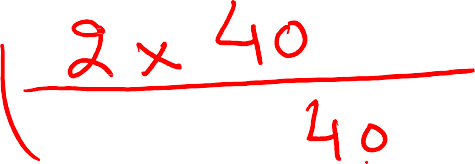 ( 2 × 40
40